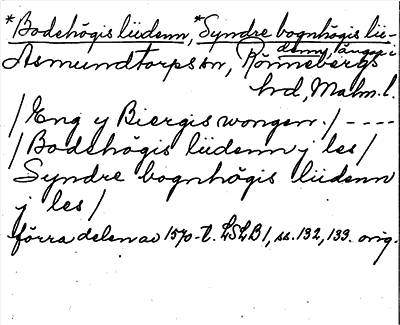 *Bodehögis liidenn, *Syndre bognhögis lii-
denn, långor i
Asmundtorps sn, Rönnebergs
hd, Malm. l.
/Eng y Biergis wongen./ ----
/Bodehögis liidenn j les/
Syndre bognhögis liidenn
j les/
förra delen av 1570-t. LSLB 1, ss. 132, 133. orig.